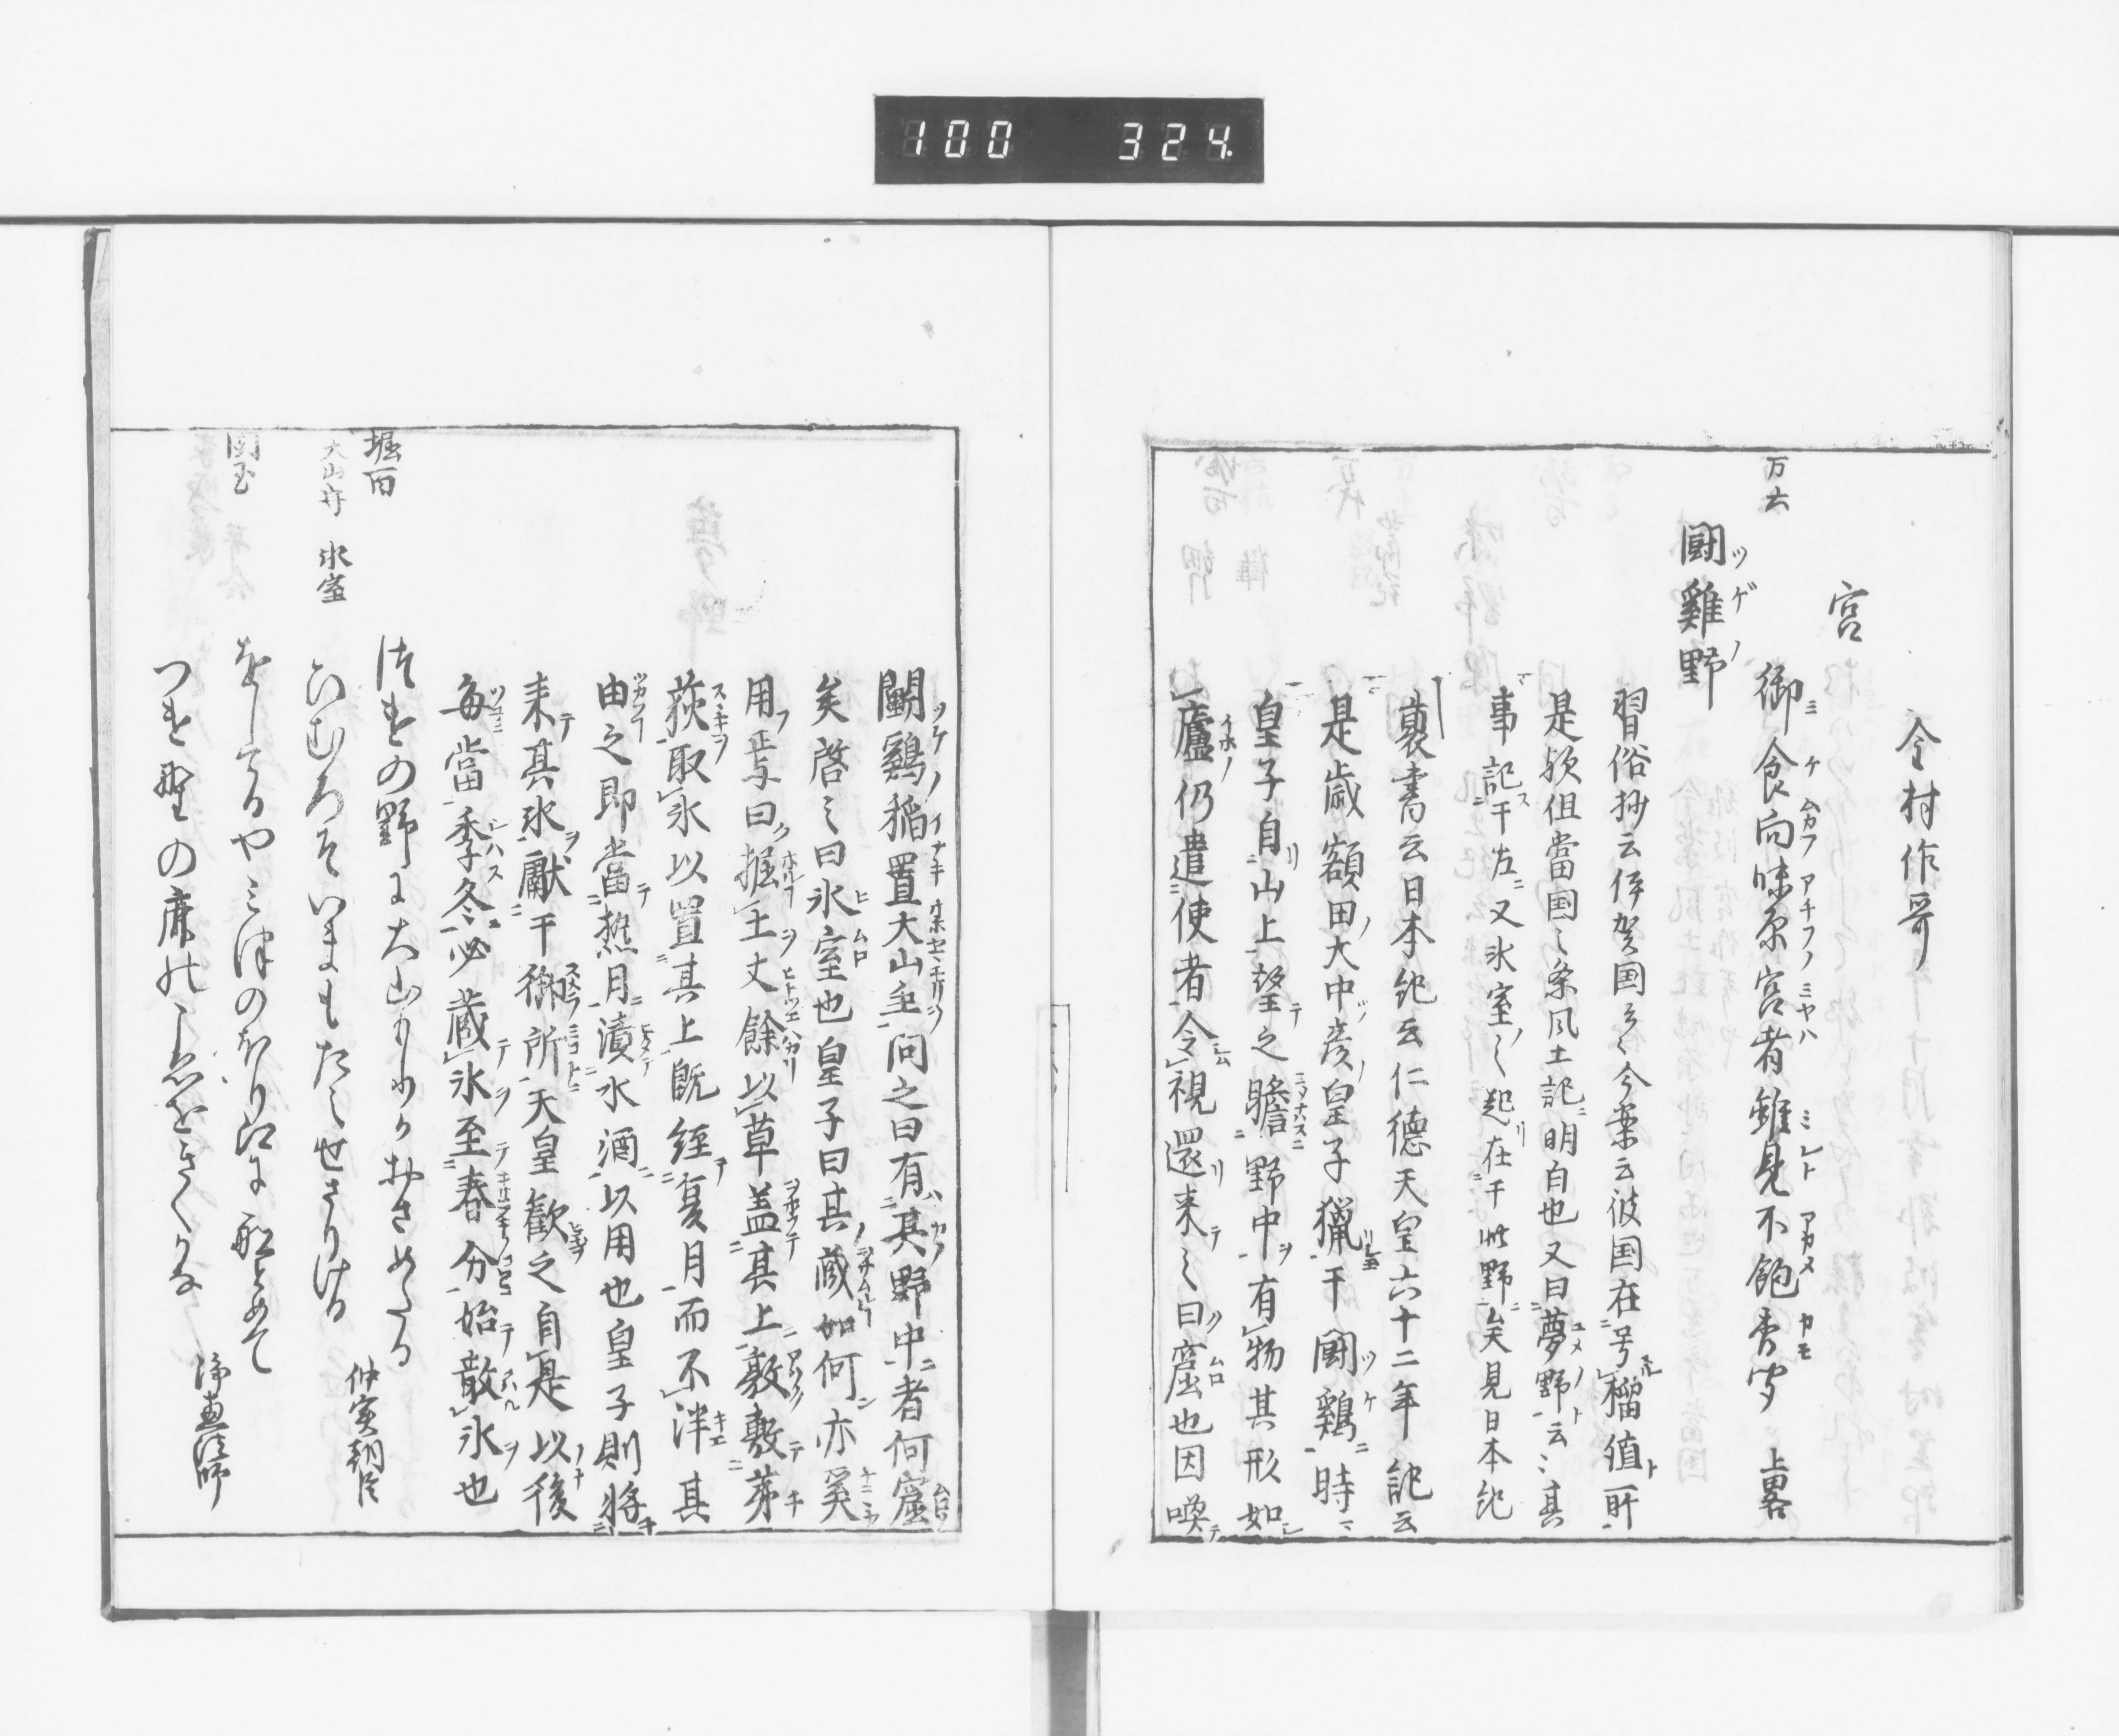 100 324
今村作哥
宮
万六
御食向味原宮者雖見不飽香聞 上畧
闘雞野
習俗抄云伊賀国云々今案云彼国在号榴値所
是歟但當国之条風土記明白也又曰夢野云々其
事記于左又氷室之起在于此野矣見日本紀
裏書云日本紀云仁徳天皇六十二年記云
是歳額田大中彦皇子獵于闘鷄時
皇子自山上望之瞻野中有物其形如
廬仍遣使者令視還来之曰窟也因喚
闘鷄稲置大山主問之曰有其野中者何窟
矣啓之曰氷室也皇子曰其蔵如何亦奚
用焉曰掘土丈餘以草盖其上敦敷茅
荻取氷以置其上既經夏月而不泮其
由之即當熱月漬水酒以用也皇子則將
来其氷獻于御所天皇歓之自是以後
毎當季冬必蔵氷至春分始散氷也
堀百
つけの野に大山もりかおさめたる
仲実朝臣
大山守 氷室
ひむろそいまもたえせさりける
国玉
をしてるやみつのほり江に船とめて
つけ野の鹿のこゑをきくかな
浄恵法師